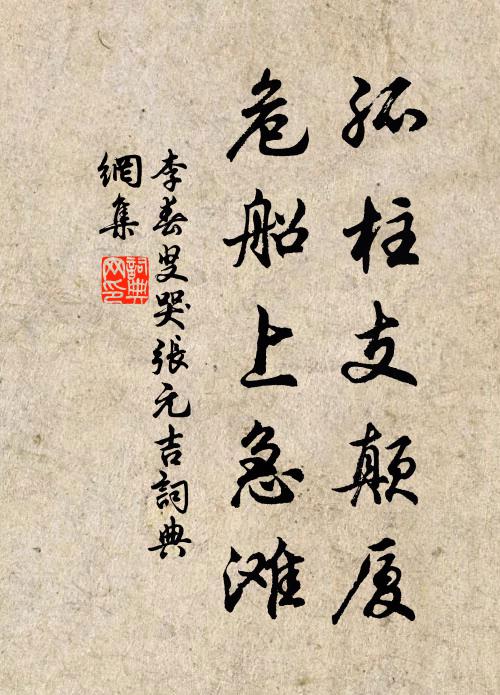 孤柱支颠厦
危船上急滩
李春叟哭張元吉詞典
網集
詞典
网印